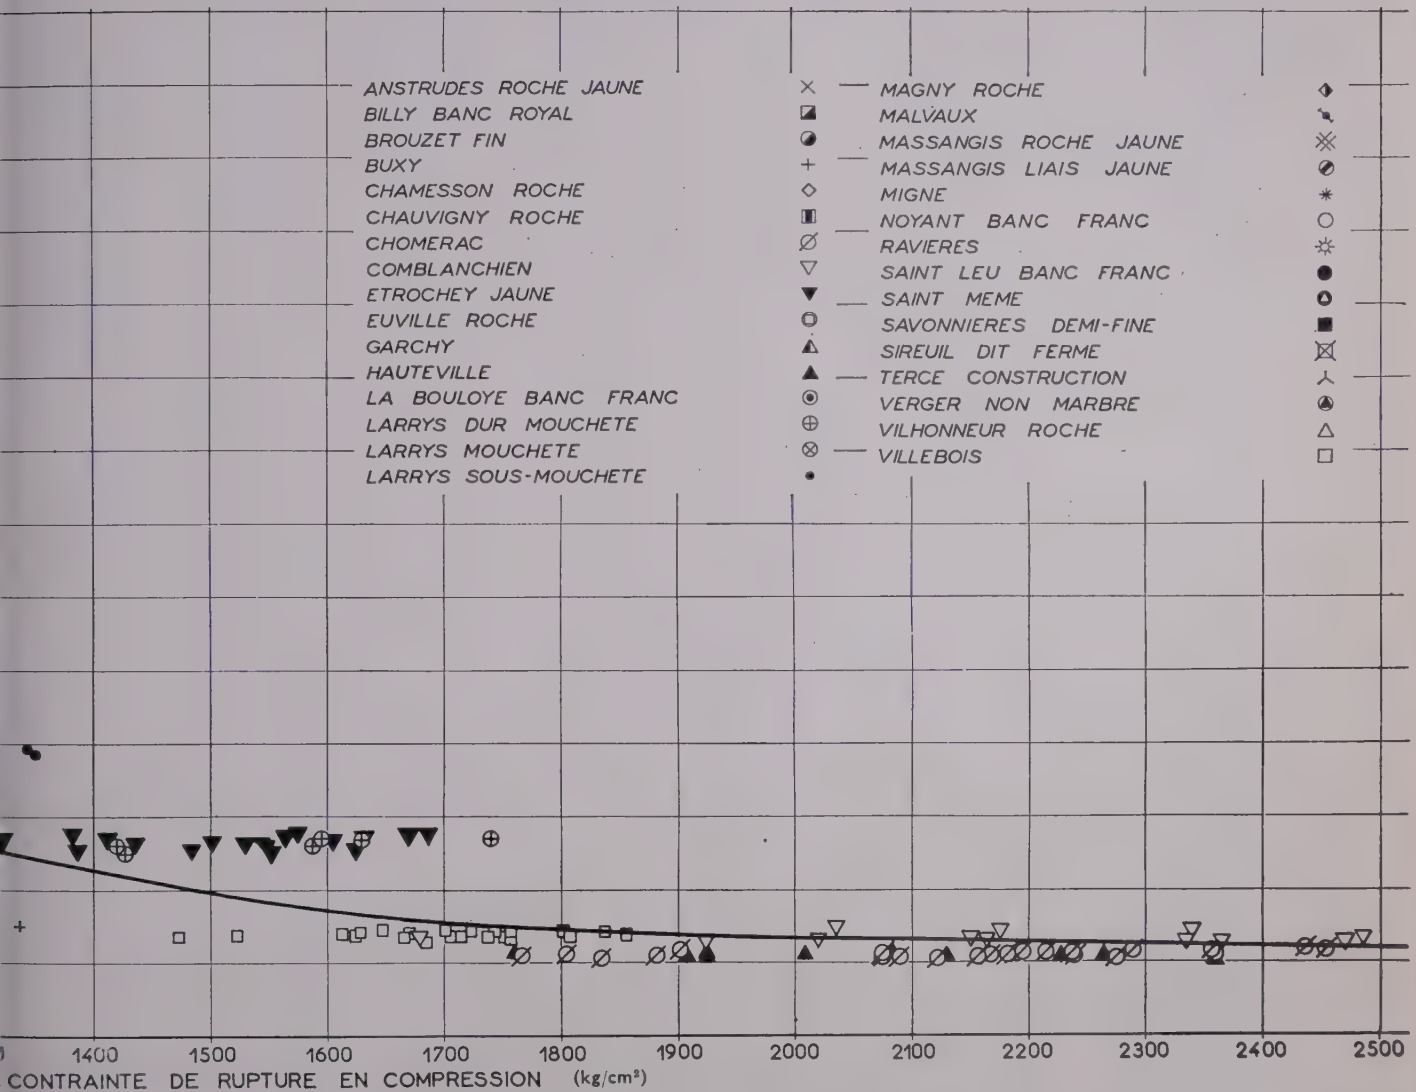 ANSTRUDES ROCHE JAUNE
BILLY BANC ROYAL
BROUZET FIN
BUXY
CHAMESSON ROCHE
CHAUVIGNY ROCHE
CHOMERAC
COMBLANCHIEN
ETROCHEY JAUNE
EUVILLE ROCHE
GARCHY
HAUTEVILLE
LA BOULOYE BANC FRANC
LARRYS DUR MOUCHETE
LARRYS MOUCHETE
LARRYS SOUS-MOUCHETE
MAGNY ROCHE
MALVAUX
MASSANGIS ROCHE JAUNE
MASSANGIS LIAIS JAUNE
MIGNE
NOYANT BANC FRANC
RAVIERES
SAINT LEU BANC FRANC
SAINT MEME
SAVONNIERES DEMI-FINE
SIREUIL DIT FERME
TERCE CONSTRUCTION
VERGER NON MARBRE
VILHONNEUR ROCHE
VILLEBOIS
1400 1500 1600 1700 1800 1900 2000 2100 2200 2300 2400 2500
CONTRAINTE DE RUPTURE EN COMPRESSION (kg/cm²)